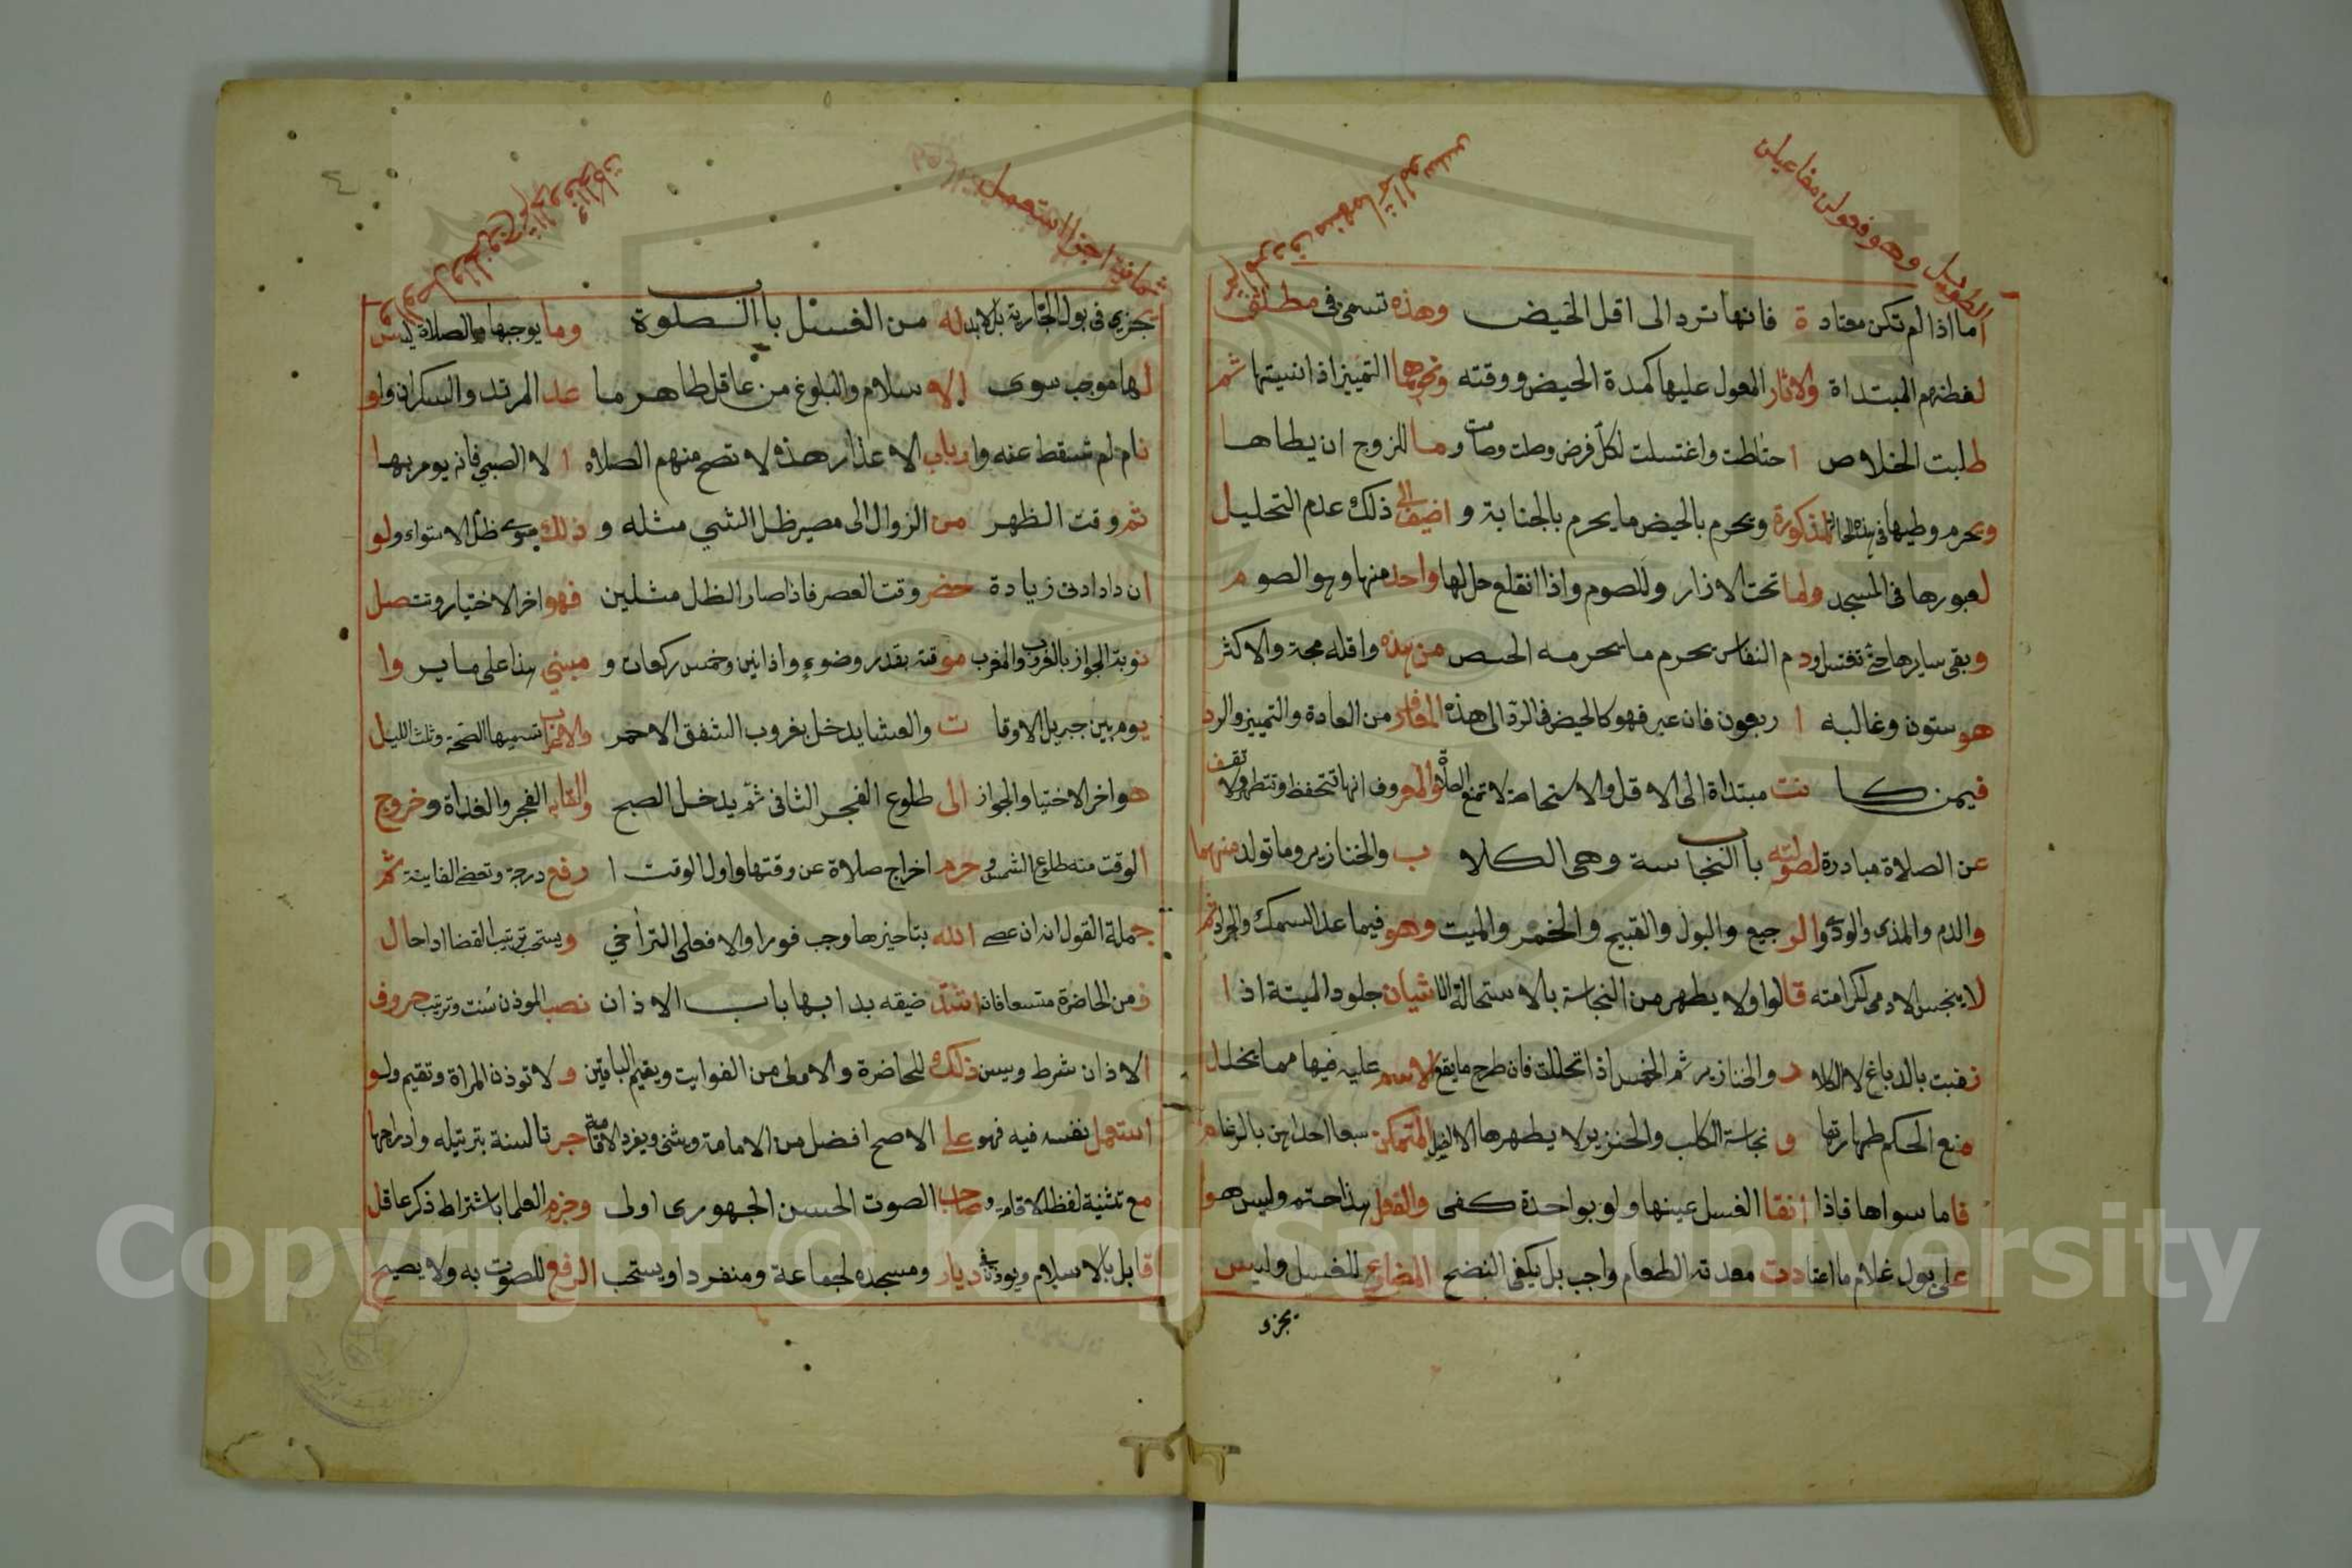 الطويل وهو فعولن مفاعيلن
أما اذا لم تكن معتادة فانها ترد الى اقل الحيض وهذه تسمى فى مطلق
لفظهم المبتداة ولاثار المعول عليها كمدة الحيض ووقته ونحوها التمييز اذا نسيتها ثم
طلبت الخلاص احتاطت واغتسلت لكل فرض وصلت وصامت وما للزوج ان يطاها
ويحرم وطيها فى هذه الحالة المذكورة ويحرم بالحيض ما يحرم بالجنابة و اضيف الى ذلك عدم التحليل
لعبورها فى المسجد ولما تحت الازار وللصوم واذا انقلع حل لها واحد منها وهو الصوم
وبقى سايرها حتى تغتسل ودم النفاس يحرم ما يحرمه الحيض من هذه واقله مجة والاكثر
هو ستون وغالبه اربعون فان عبر فهو كالحيض فى الرد الى هذه من العادة والتمييز والرد
فيمن كانت مبتداة الى الاقل والاستحاضة لا تمنع الصلاة والمعروف انها تتحفظ وتتطهر ولا تقف
عن الصلاة مبادرة باب النجاسة وهى الكلاب والخنازير وما تولد منهما
والدم والمذى والودى والرجيع والبول والقيح والخمر والميت وهو فيما عدا السمك والجراد ثم
لا ينجس الادمى لكرامته قالوا ولا يطهر من النجاسة بالاستحالة الا شيان جلود الميتة اذا
بالدباغ لا الكلاب والخنازير ثم الخمر اذا تخللت فان طرح ما يقع عليه فيها مما يخلل
منع الحكم طهارتها و نجاسة الكلب والخنزير لا يطهرها الا الغسل المتمكن سبعا احداهن بالرغام
فاما سواها فاذا انقا الغسل عينها ولو بواحدة كفى والقول هذا حتم وليس هو
على بول غلام ما اعتادت معدته الطعام واجب بل يكفى النضح المضارع للغسل وليس
يجزى
ثمانية اجزا استعمل
يجزى فى بول الجارية بل لابد له من الغسل باب الصلوة وما يوجبها الصلاة ليس
لها موجب سوى الاسلام والبلوغ من عاقل طاهر ما عدا المرتد والسكران ولو
نام لم تسقط عنه وارباب الاعذار هذه لا تصح منهم الصلاه الا الصبي فانه يومر بها
ثم وقت الظهر من الزوال الى مصير ظل الشي مثله و ذلك سوى ظل الاستواء ولو
ان ذا دادنى زيادة حضر وقت العصر فاذا صار الظل مثلين فهو اخر الاختيار وتتصل
نوبة الجواز بالغروب والمغرب موقته بقدر وضوءٍ واذانين وخمس ركعات و مبني هذا على ما يروا
يوم بين جبريل الاوقات والعشا يدخل بغروب الشفق الاحمر والاعراب تسميها العتمة وثلث الليل
هو اخر الاختيا والجواز الى طلوع الفجر الثانى ثم يدخل الصبح الفجر والغداة وخروج
الوقت منه طلوع الشمس وحرم اخراج صلاة عن وقتها واول الوقت ارفع درجة وتقضى الفايتة ثم
جملة القول انه ان عصى الله بتاخيرها وجب فورا والا فعلى التراخي ويستحب ترتيب القضا اداحال
زمن الحاضرة متسعا فان اشتد ضيقه بدا بها باب الاذان نصب الموذن سنت وترتيب حروف
الاذان شرط ويسن ذلك للحاضرة والاولى من الفوايت ويقيم للباقين و لا توذن المراة وتقيم ولو
استعمل نفسه فيه فهو على الاصح افضل من الامامة ويثنى ويفرد الاقامة جرت السنة بترتيله وادراجها
مع تثنية لفظ الاقامه وصاحب الصوت الحسن الجهورى اولى وجزم العلما باشتراط ذكر عاقل
قابل بالاسلام ويوذن فى ديار ومسجده لجماعة ومنفردا ويستحب الرفع للصوت به ولا يصيح
٤
Copyright © King Saud University